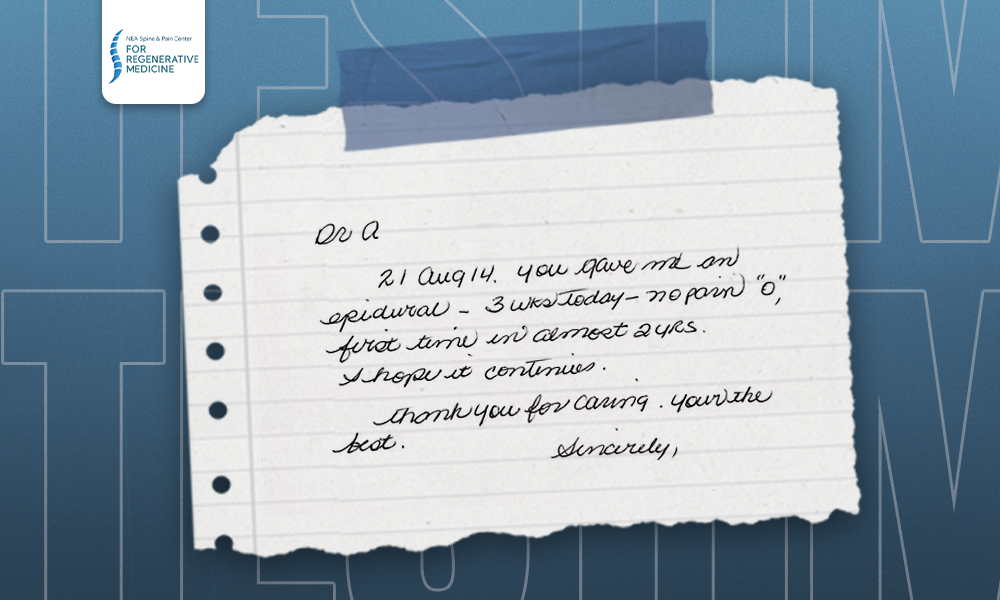 NEA Spine & Pain Center
FOR
REGENERATIVE
MEDICINE
Dr A
21 Aug 14. you gave me an
epidural - 3 wks today - no pain "0",
first time in almost 2 yrs.
I hope it continues.
thank you for caring. your the
best.
Sincerely,
TESTIM
TESTIM